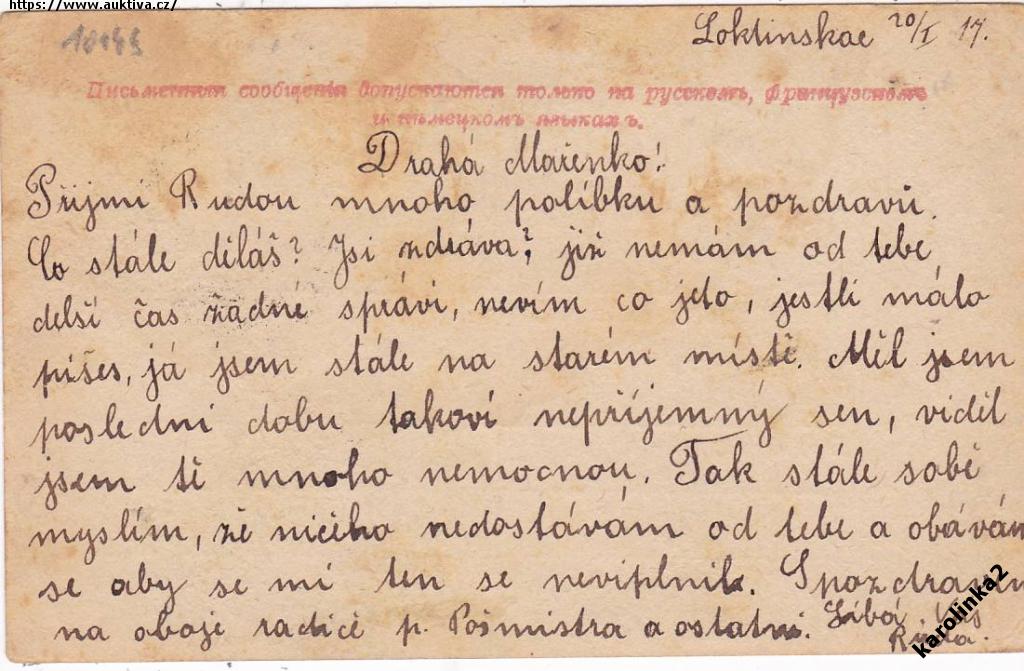 https://www.auktiva.cz/
Loktinskae 20/I 17.
Письменныя сообщенія допускаются только на русскомъ, французскомъ
и нѣмецкомъ языкахъ.
Drahá Mařenko!
Přijmi Rudou mnoho políbku a pozdravů.
Co stále diláš? Jsi zdráva? již nemám od tebe
delší čas žádné správi, nevím co jeto, jestli málo
píšes, já jsem stále na starém místě. Měl jsem
poslední dobu takoví nepříjemný sen, viděl
jsem tě mnoho nemocnou. Tak stále sobě
myslím, že ničého nedostávám od tebe a obávám
se aby se mi ten se neviplnil. S pozdravem
na oboje radiče p. Pošmistra a ostatní. Líbá
Ruda.
karolinka2